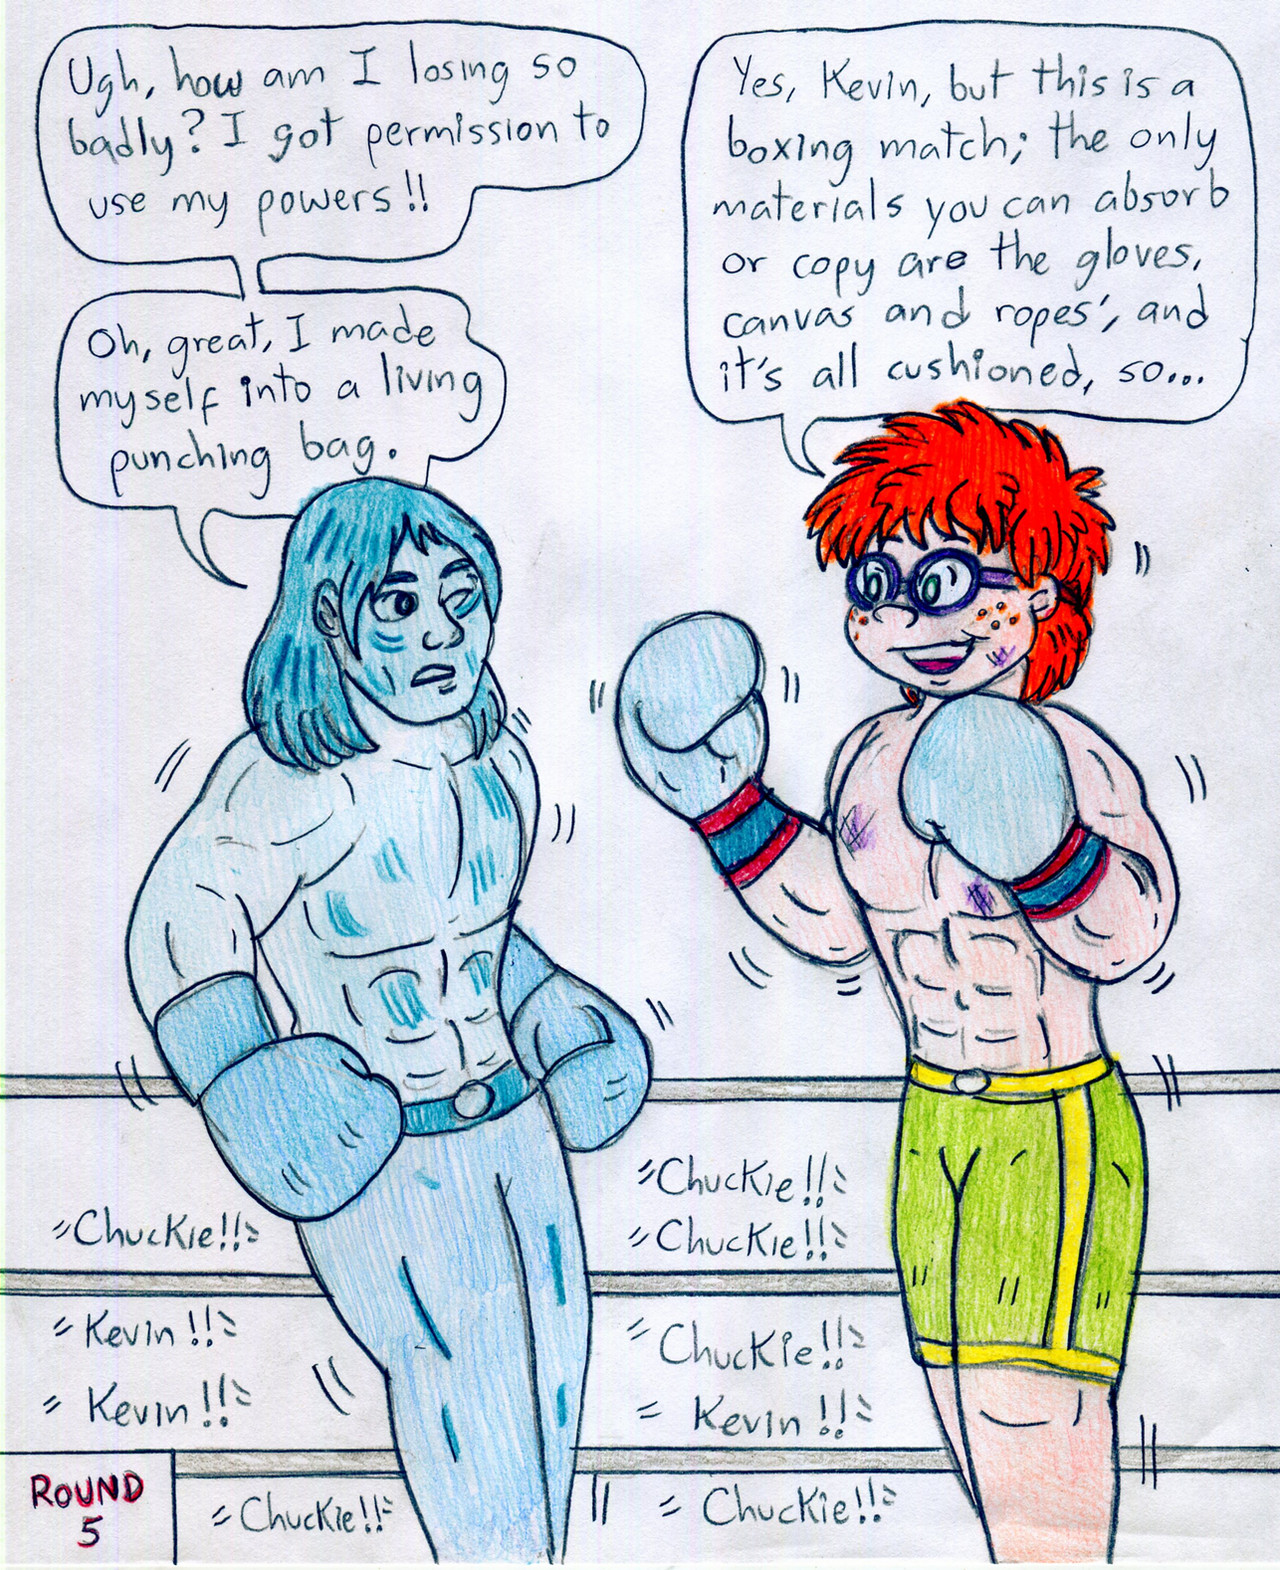 Ugh, how am I losing so
badly? I got permission to
use my powers!!
Oh, great, I made
myself into a living
punching bag.
Yes, Kevin, but this is a
boxing match; the only
materials you can absorb
or copy are the gloves,
canvas and ropes', and
it's all cushioned, so...
Chuckie!!
Kevin!!
Kevin!!
Chuckie!!
Chuckie!!
Chuckie!!
Chuckie!!
Kevin!!
Chuckie!!
ROUND
5